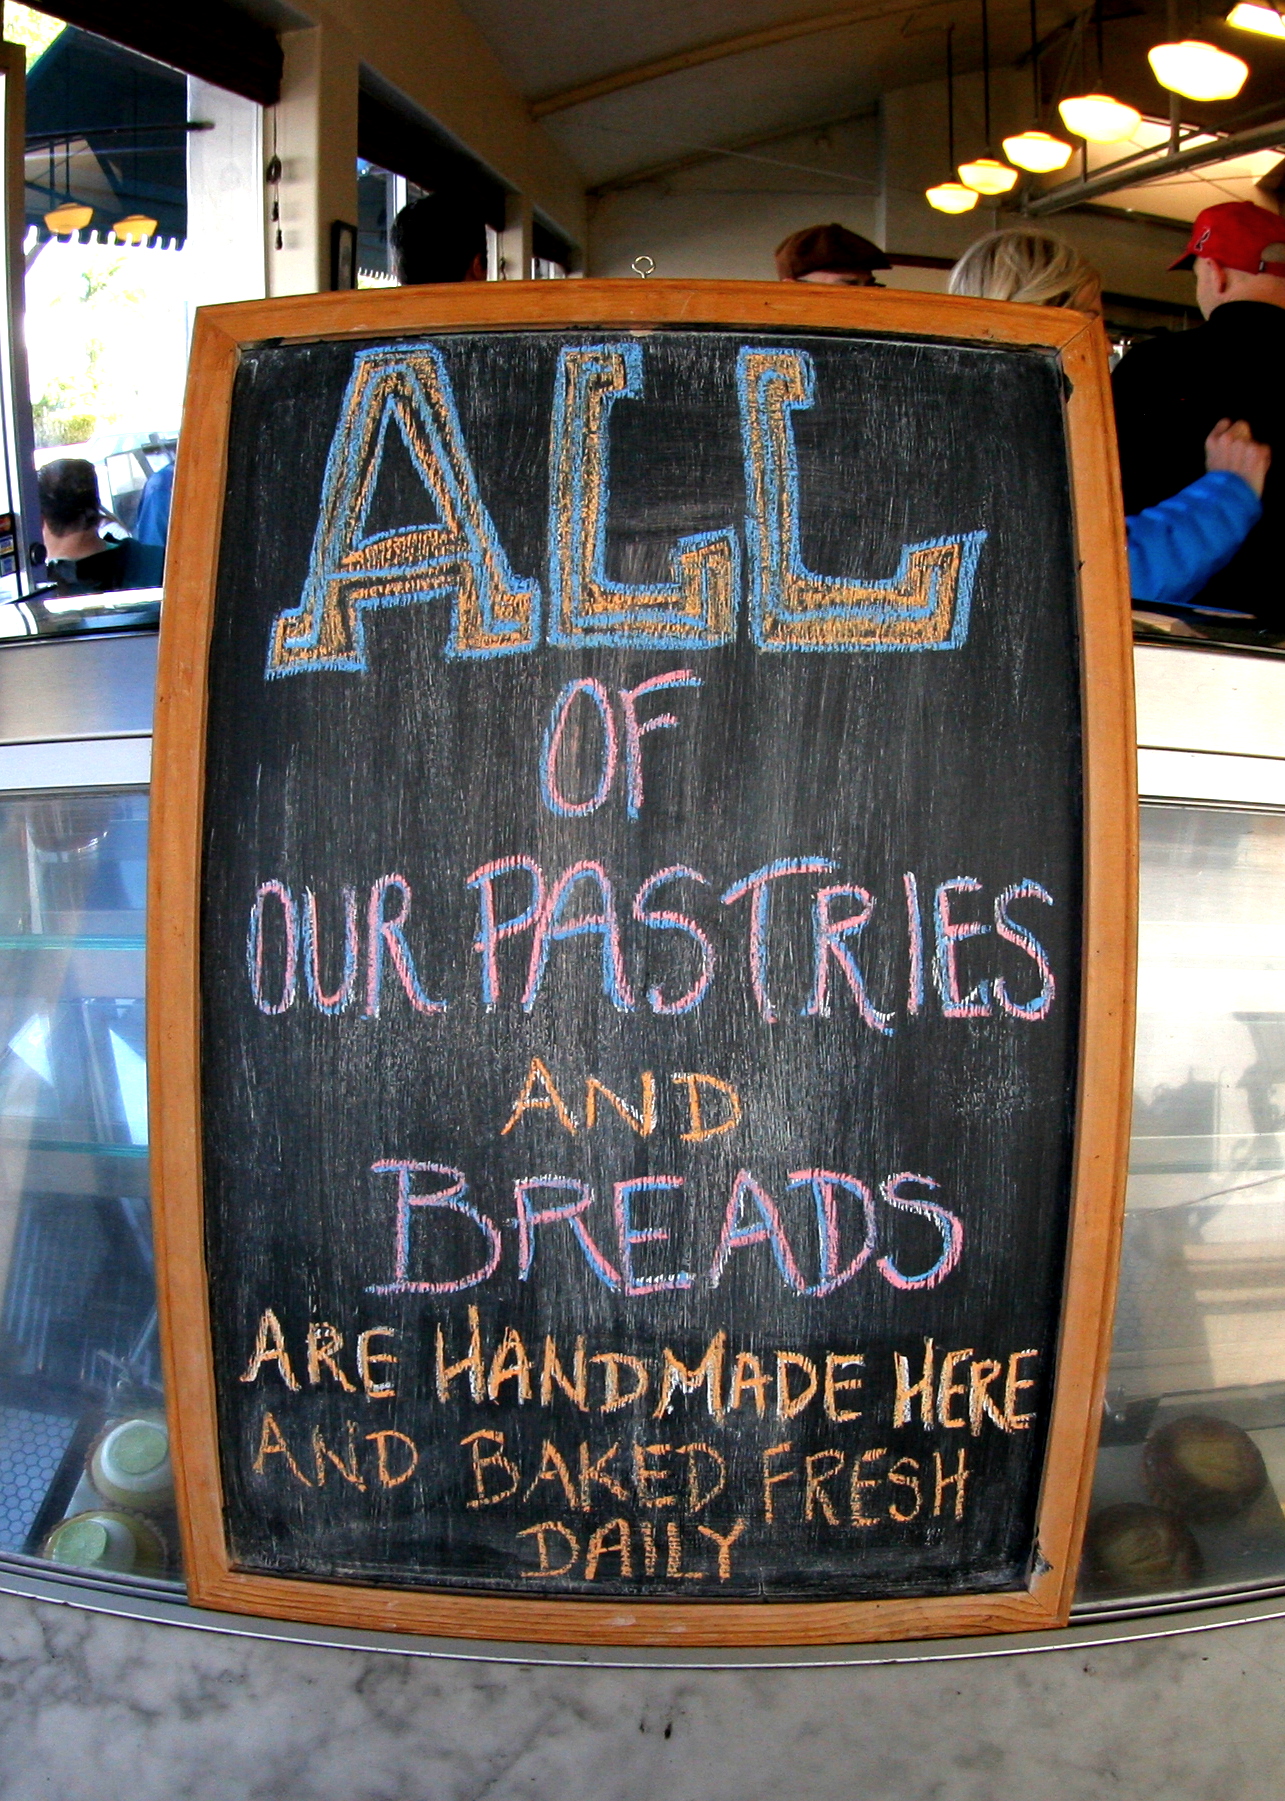 ALL
OF
OUR PASTRIES
AND
BREADS
ARE HANDMADE HERE
AND BAKED FRESH
DAILY